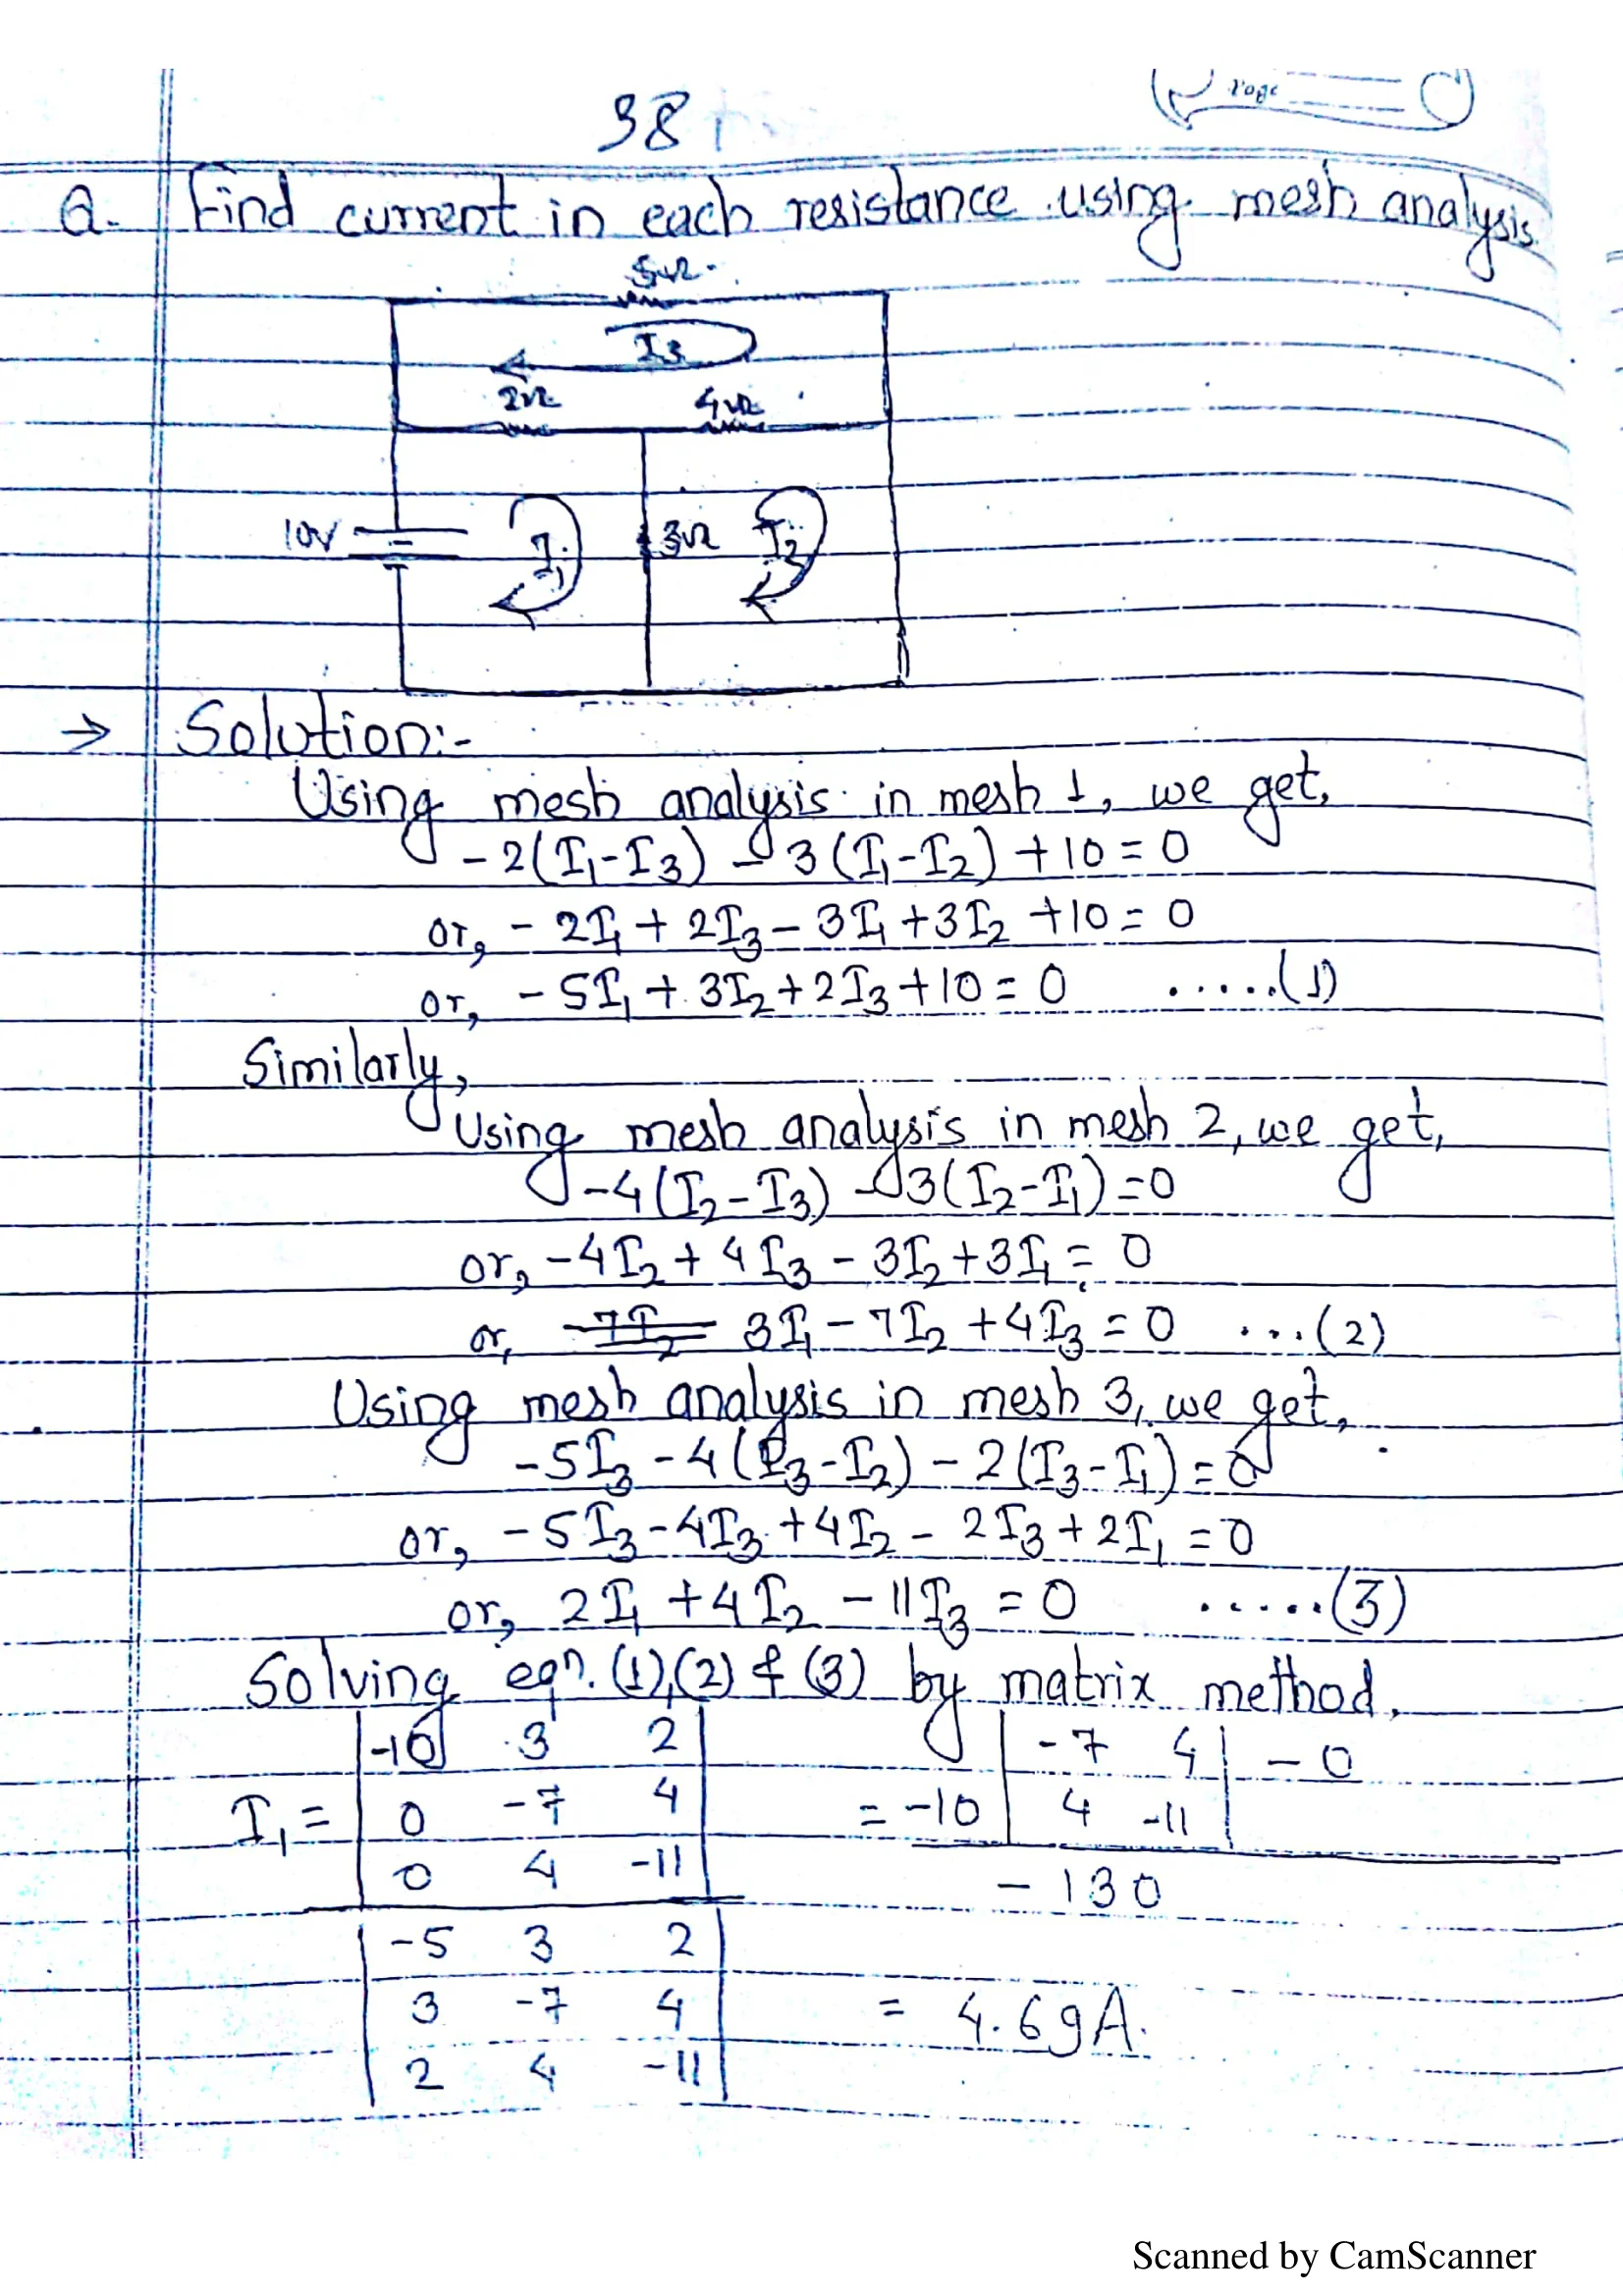 38
Page
Q. Find current in each resistance using mesh analysis.
5Ω
I3
2Ω 4Ω
10V I1 3Ω I2
→ Solution:-
Using mesh analysis in mesh 1, we get,
-2(I1-I3) - 3(I1-I2) +10 = 0
or, -2I1 + 2I3 - 3I1 + 3I2 +10 = 0
or, -5I1 + 3I2 + 2I3 + 10 = 0 .....(1)
Similarly,
Using mesh analysis in mesh 2, we get,
-4(I2-I3) - 3(I2-I1) = 0
or, -4I2 + 4I3 - 3I2 + 3I1 = 0
or, -7I2 3I1 - 7I2 + 4I3 = 0 ...(2)
Using mesh analysis in mesh 3, we get,
-5I3 - 4(I3-I2) - 2(I3-I1) = 0
or, -5I3 - 4I3 + 4I2 - 2I3 + 2I1 = 0
or, 2I1 + 4I2 - 11I3 = 0 .....(3)
Solving eqn. (1),(2) & (3) by matrix method.
I1 = | -10 3 2 | = -10 | -7 4 | - 0
| 0 -7 4 | | 4 -11 |
| 0 4 -11 | -130
| -5 3 2 |
| 3 -7 4 | = 4.69A.
| 2 4 -11 |
Scanned by CamScanner